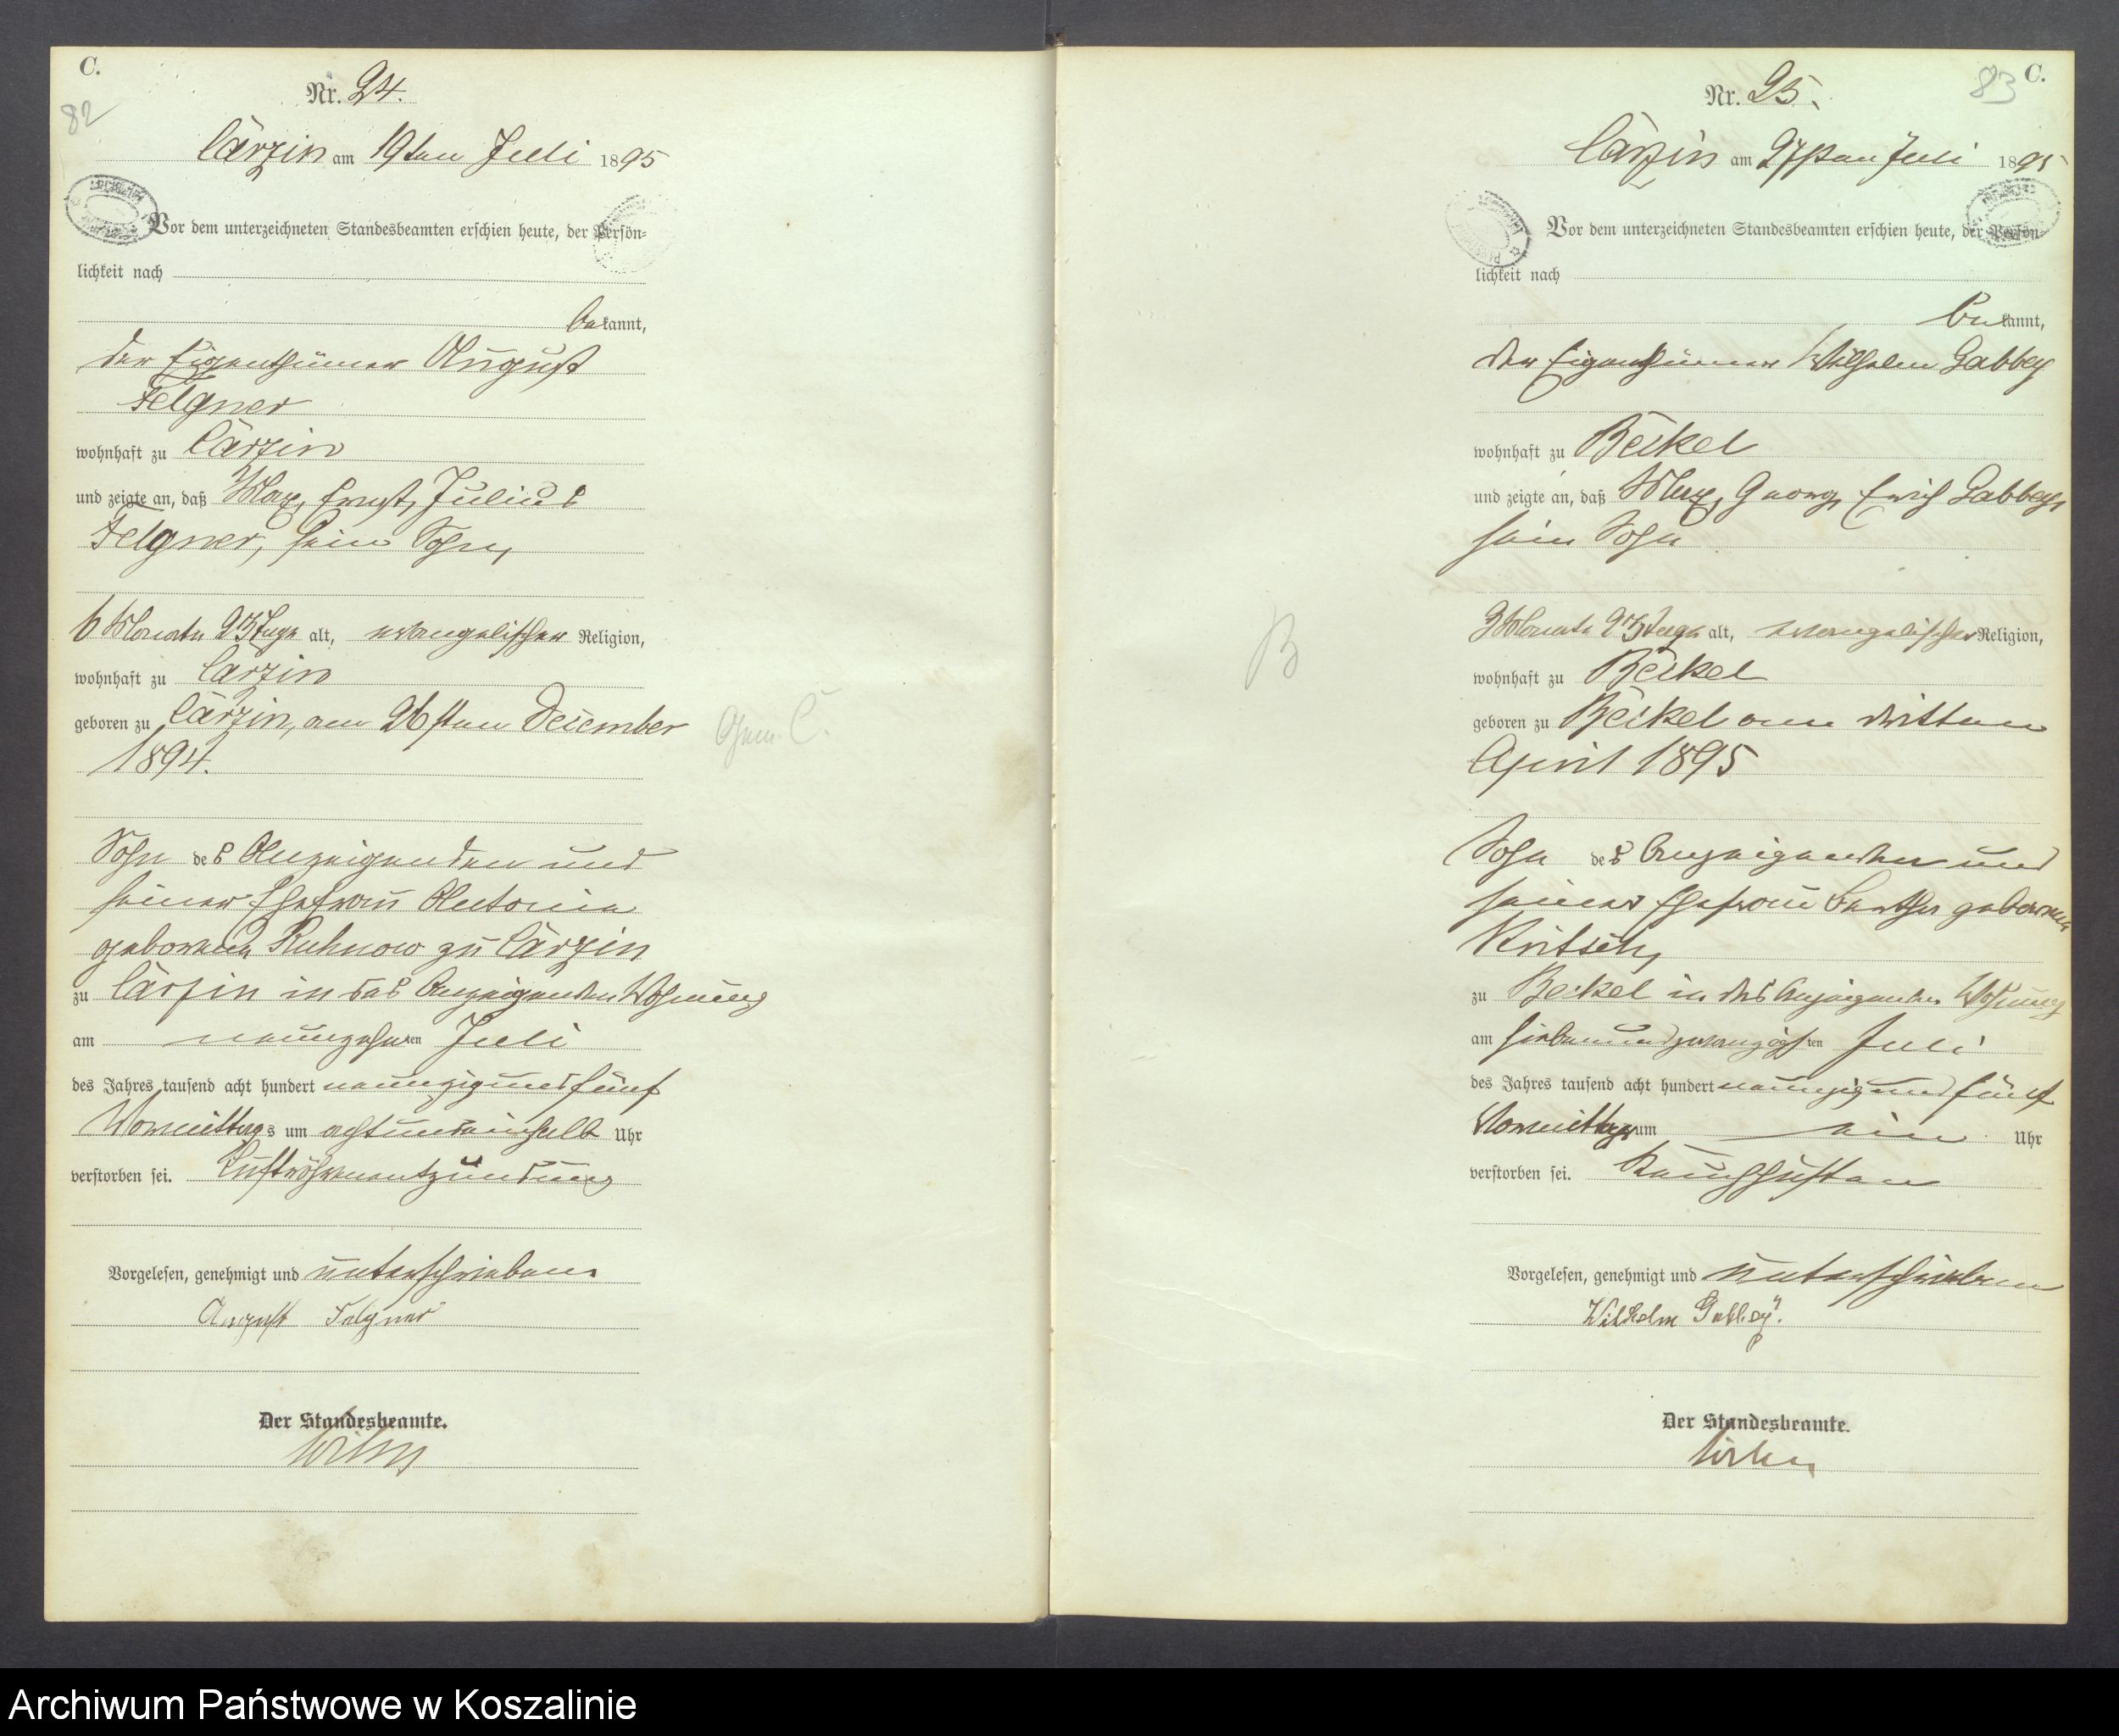 C.
82
Nr. 24.
Cärzin am 19ten Juli 1895
Vor dem unterzeichneten Standesbeamten erschien heute, der Persön-
lichkeit nach
bekannt,
der Eigenthümer August
Felgner
wohnhaft zu Cärzin
und zeigte an, daß Max, Ernst, Julius
Felgner, sein Sohn,
6 Monate 23 Tage alt, evangelischer Religion,
wohnhaft zu Cärzin
geboren zu Cärzin, am 26sten December
1894.
Sohn des Anzeigenden und
seiner Ehefrau Antonie
geborenen Ruhnow zu Cärzin
zu Cärzin in des Anzeigenden Wohnung
am neunzehnten Juli
des Jahres tausend acht hundert neunzig und fünf
Vormittags um acht und einhalb Uhr
verstorben sei. Luftröhrenentzündung
Vorgelesen, genehmigt und unterschrieben
August Felgner
Der Standesbeamte.
C.
83
Nr. 25.
Cärzin am 27sten Juli 1895
Vor dem unterzeichneten Standesbeamten erschien heute, der Persön-
lichkeit nach
bekannt,
der Eigenthümer Wilhelm Gabbey
wohnhaft zu Beckel
und zeigte an, daß Max, Georg, Erich Gabbey,
sein Sohn
3 Monate 23 Tage alt, evangelischer Religion,
wohnhaft zu Beckel
geboren zu Beckel am dritten
April 1895
B
Sohn des Anzeigenden und
seiner Ehefrau Bertha geborenen
zu Beckel in des Anzeigenden Wohnung
am siebenundzwanzigsten Juli
des Jahres tausend acht hundert neunzig und fünf
Vormittags um ein Uhr
verstorben sei. Keuchhusten
Vorgelesen, genehmigt und unterschrieben
Wilhelm Gabbey.
Der Standesbeamte.
Archiwum Państwowe w Koszalinie